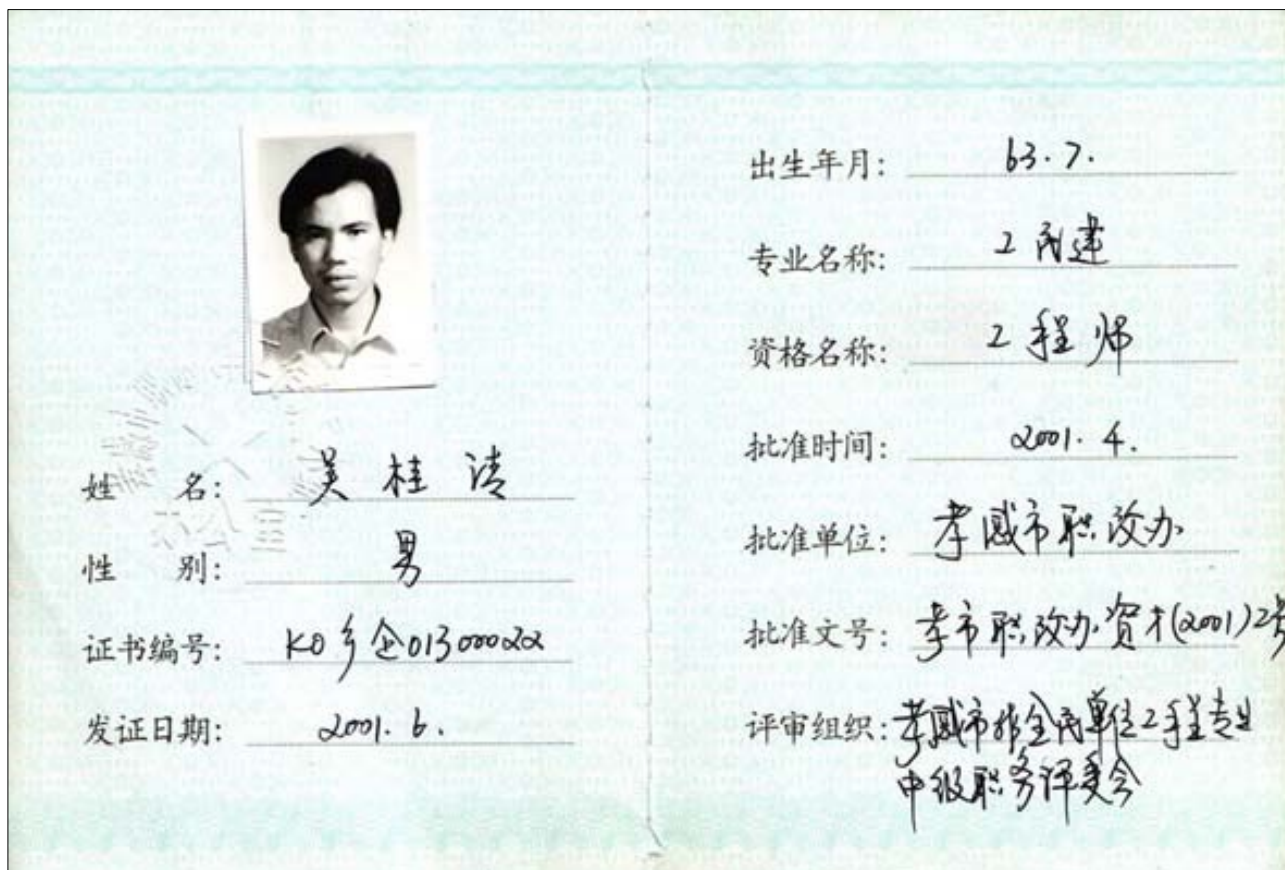 姓 名: 吴桂清
性 别: 男
证书编号: K0乡企013000022
发证日期: 2001.6.
出生年月: 63.7.
专业名称: 工民建
资格名称: 工程师
批准时间: 2001.4.
批准单位: 孝感市职改办
批准文号: 孝市职改办资才(2001)2号
评审组织: 孝感市非全民单位工程专业
中级职务评委会